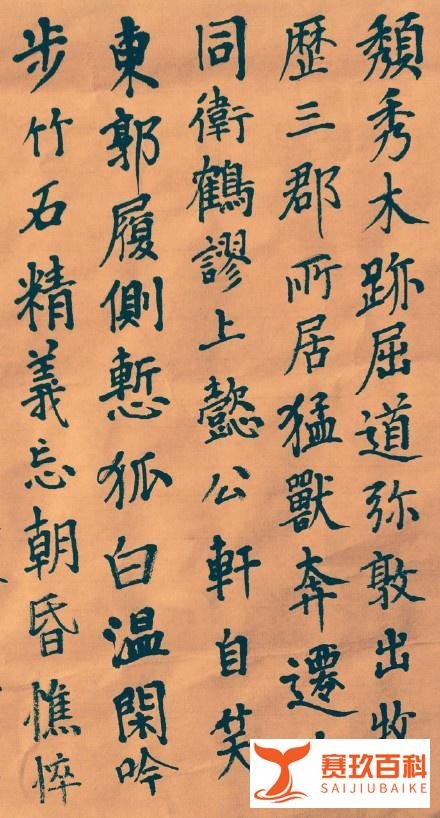 秀木跡屈道弥敦出牧
歷三郡所居猛獸奔遷
同衛鶴謬上懿公軒自笑
東郭履側慙狐白温閑吟
步竹石精義忘朝昏憔悴
赛玖百科
SAIJIUBAIKE